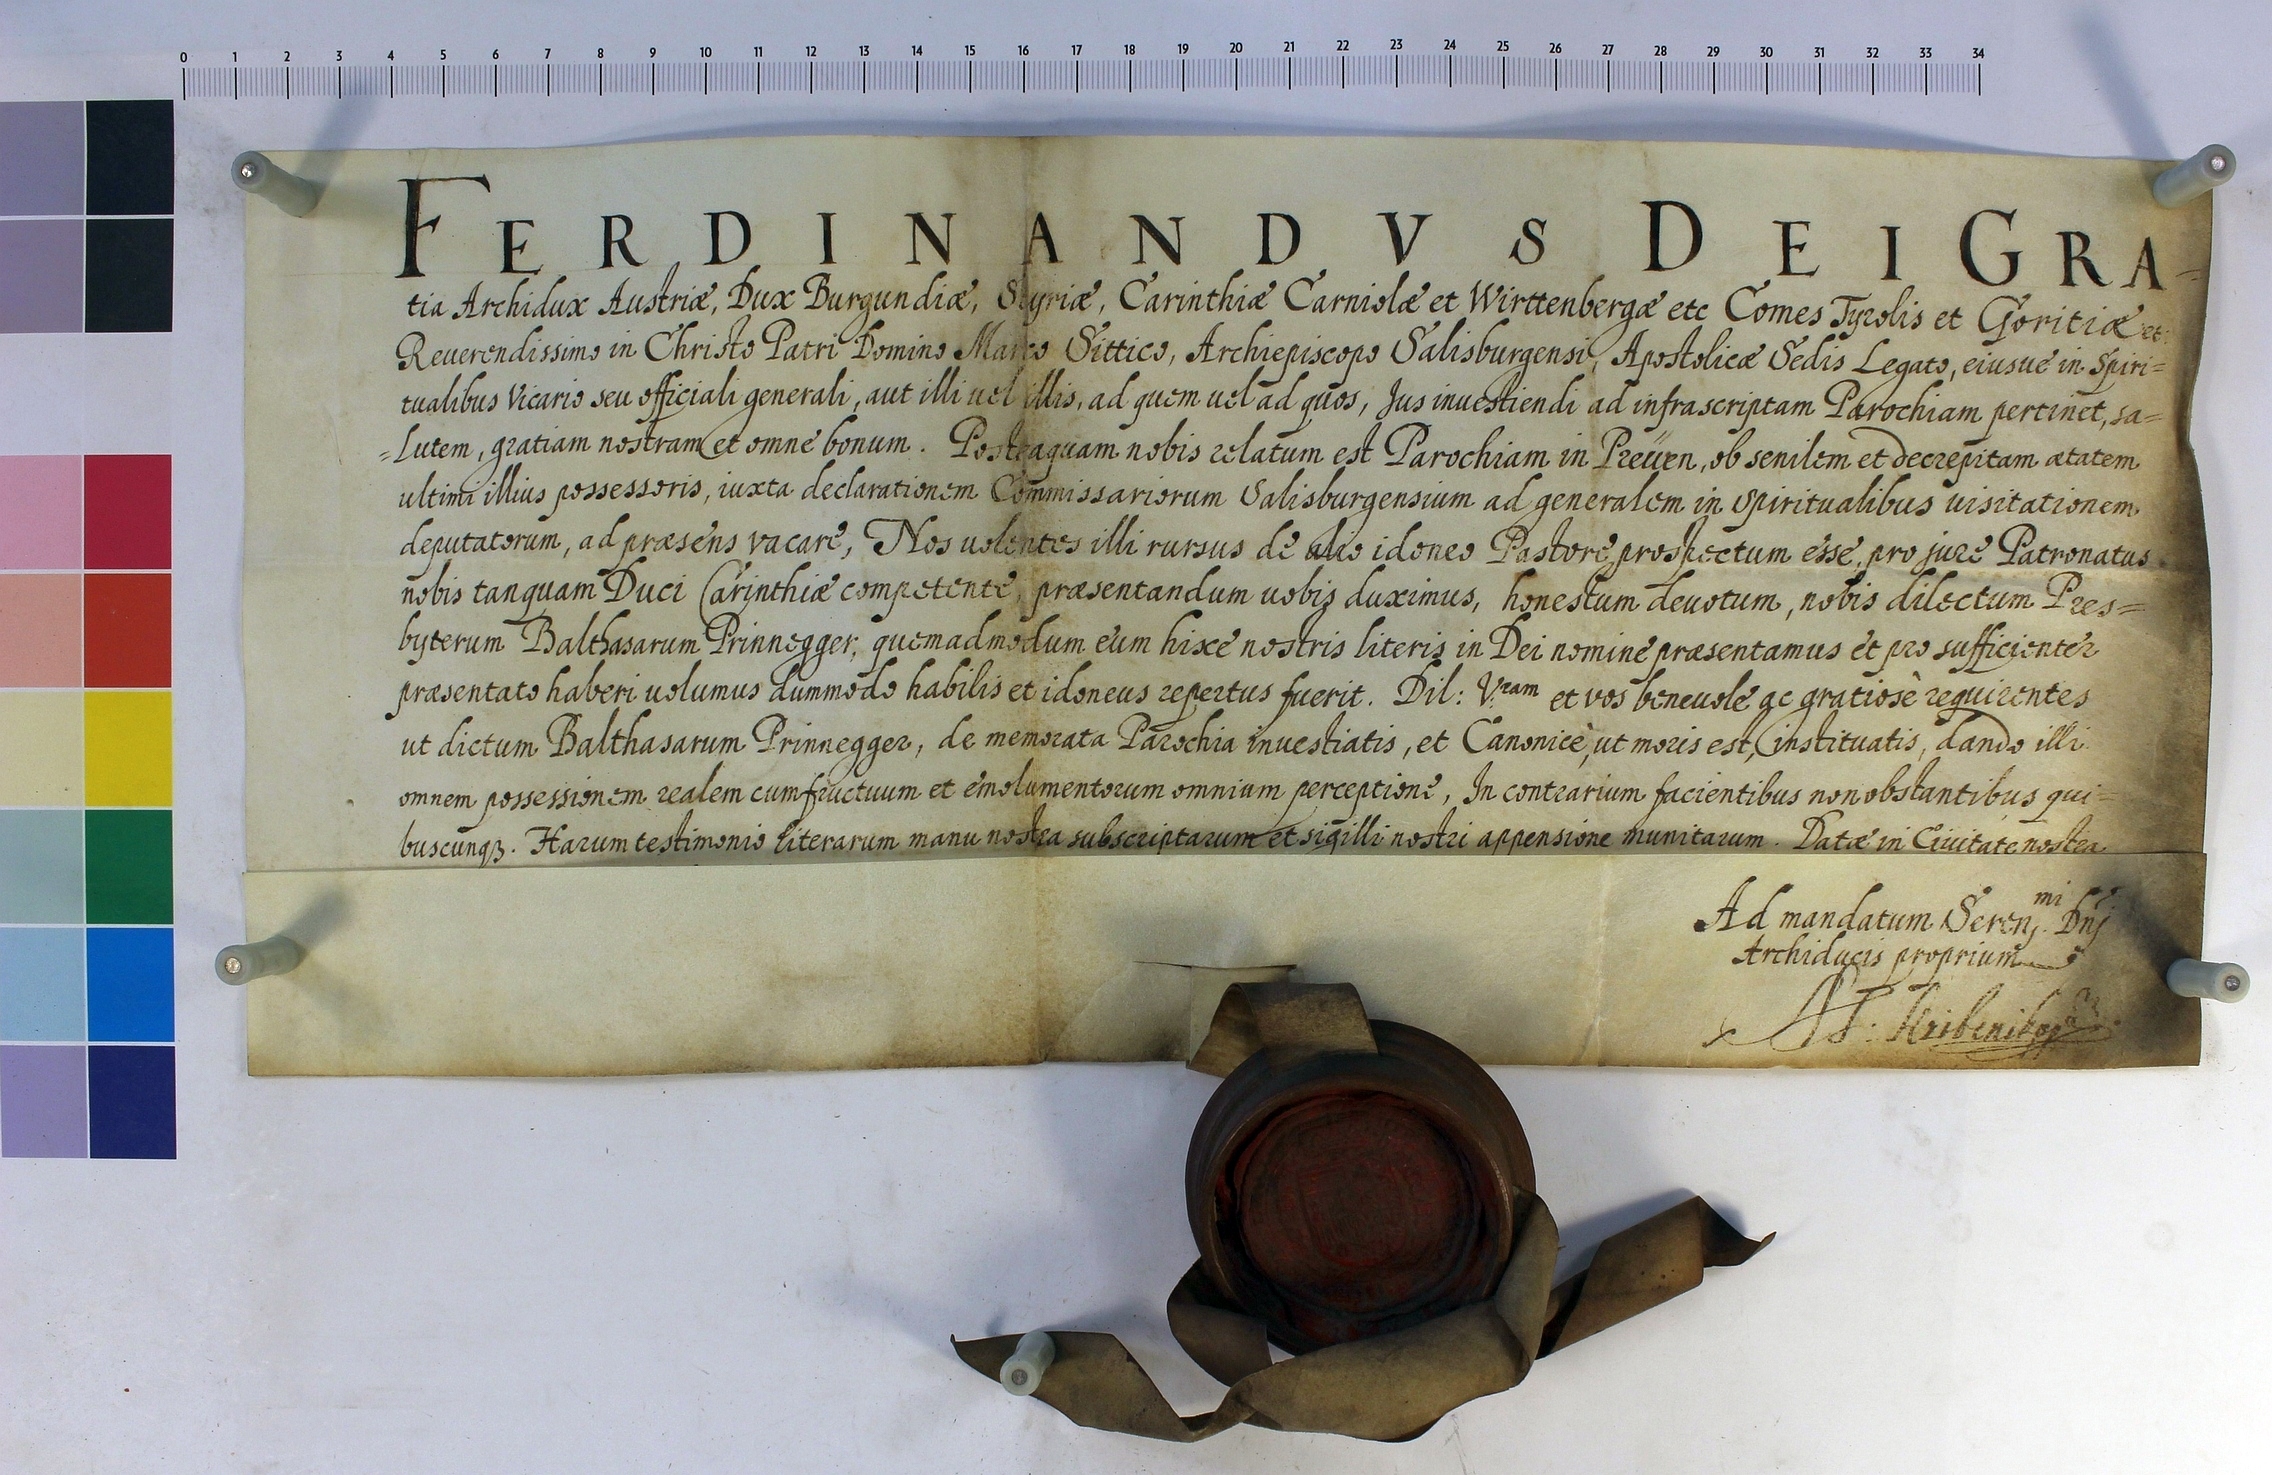 0 1 2 3 4 5 6 7 8 9 10 11 12 13 14 15 16 17 18 19 20 21 22 23 24 25 26 27 28 29 30 31 32 33 34
FERDINANDVS DEI GRA-
tia Archidux Austriæ, Dux Burgundiæ, Styriæ, Carinthiæ Carniolæ et Wirttenbergæ etc Comes Tyrolis et Goritiæ etc
Reuerendissimo in Christo Patri Domino Marco Sittico, Archiepiscopo Salisburgensi, Apostolicæ Sedis Legato, eiusue in Spiri=
tualibus Vicario seu officiali generali, aut illi uel illis, ad quem uel ad quos, Jus inuestiendi ad infrascriptam Parochiam pertinet, sa=
=lutem, gratiam nostram et omne bonum. Posteaquam nobis relatum est Parochiam in Preüen, ob senilem et decrepitam ætatem
ultimi illius possessoris, iuxta declarationem Commissariorum Salisburgensium ad generalem in spiritualibus uisitationem
deputatorum, ad præsens vacare, Nos uolentes illi rursus de alio idoneo Pastore prospectum esse, pro jure Patronatus
nobis tanquam Duci Carinthiæ competente, præsentandum uobis duximus, honestum deuotum, nobis dilectum Pres=
byterum Balthasarum Prinnegger, quemadmodum eum hisce nostris literis in Dei nomine præsentamus et pro sufficienter
præsentato haberi uolumus dummodo habilis et idoneus repertus fuerit. Dil: Vram et vos beneuole ac gratiosè requirentes
ut dictum Balthasarum Prinnegger, de memorata Parochia inuestiatis, et Canonicè, ut moris est, instituatis, dando illi
omnem possessionem realem cum fructuum et emolumentorum omnium perceptione, In contrarium facientibus non obstantibus qui=
buscunqꝫ. Harum testimonio literarum manu nostra subscriptarum et sigilli nostri appensione munitarum. Datæ in Ciuitate nostra
Ad mandatum Serenmi Dnj
Archiducis proprium